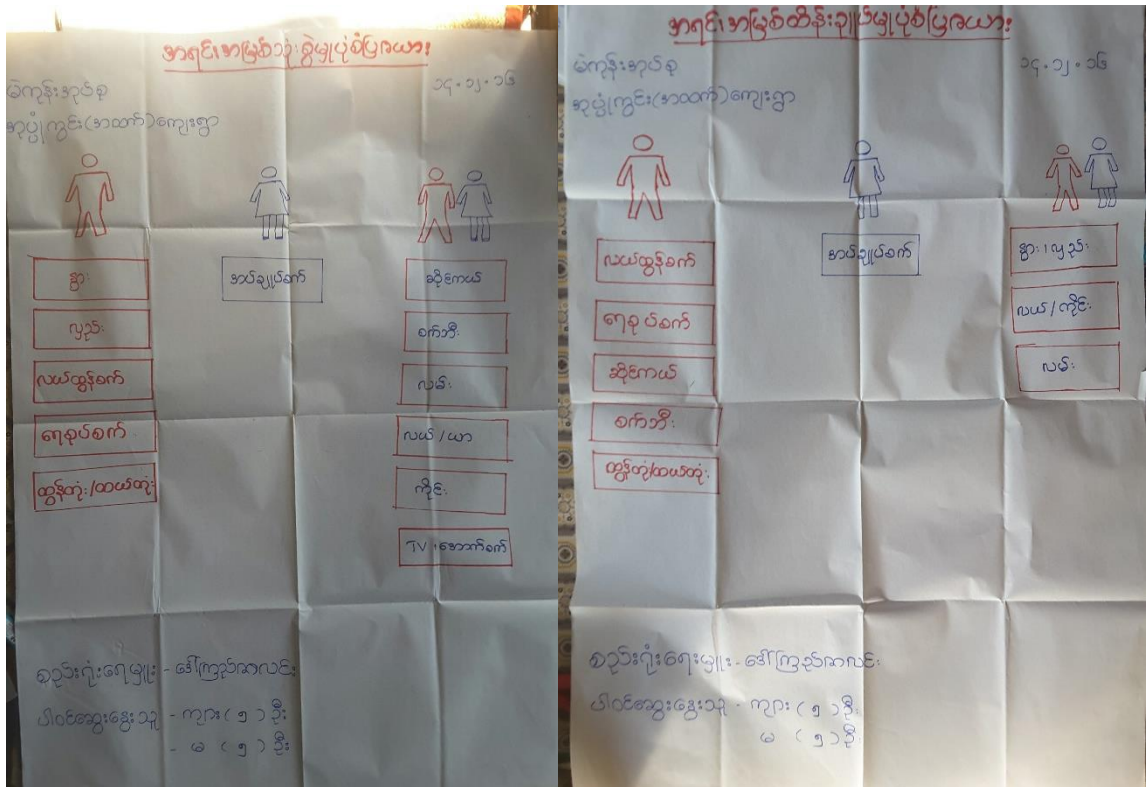 အရင်းအမြစ်သုံးစွဲမှုပုံစံပြဇယား
မဲကုန်းအုပ်စု
၁၄.၁၂.၁၆
အုပ္ပုံကွင်း(အထက်)ကျေးရွာ
နွား
လှည်း
လယ်ထွန်စက်
ရေစုပ်စက်
ထွန်တုံး/ထယ်တုံး
အပ်ချုပ်စက်
ဆိုင်ကယ်
စက်ဘီး
လမ်း
လယ်/ယာ
ကိုင်း
TV အောက်စက်
စည်းရုံးရေးမှူး - ဒေါ်ကြည်ကလင်း
ပါဝင်ဆွေးနွေးသူ - ကျား (၅) ဦး
- မ (၅) ဦး
အရင်းအမြစ်ထိန်းချုပ်မှုပုံစံပြဇယား
မဲကုန်းအုပ်စု
၁၄.၁၂.၁၆
အုပ္ပုံကွင်း(အထက်)ကျေးရွာ
လယ်ထွန်စက်
ရေစုပ်စက်
ဆိုင်ကယ်
စက်ဘီး
ထွန်တုံး/ထယ်တုံး
အပ်ချုပ်စက်
နွား၊လှည်း
လယ်/ကိုင်း
လမ်း
စည်းရုံးရေးမှူး - ဒေါ်ကြည်ကလင်း
ပါဝင်ဆွေးနွေးသူ - ကျား (၅) ဦး
မ (၅) ဦး